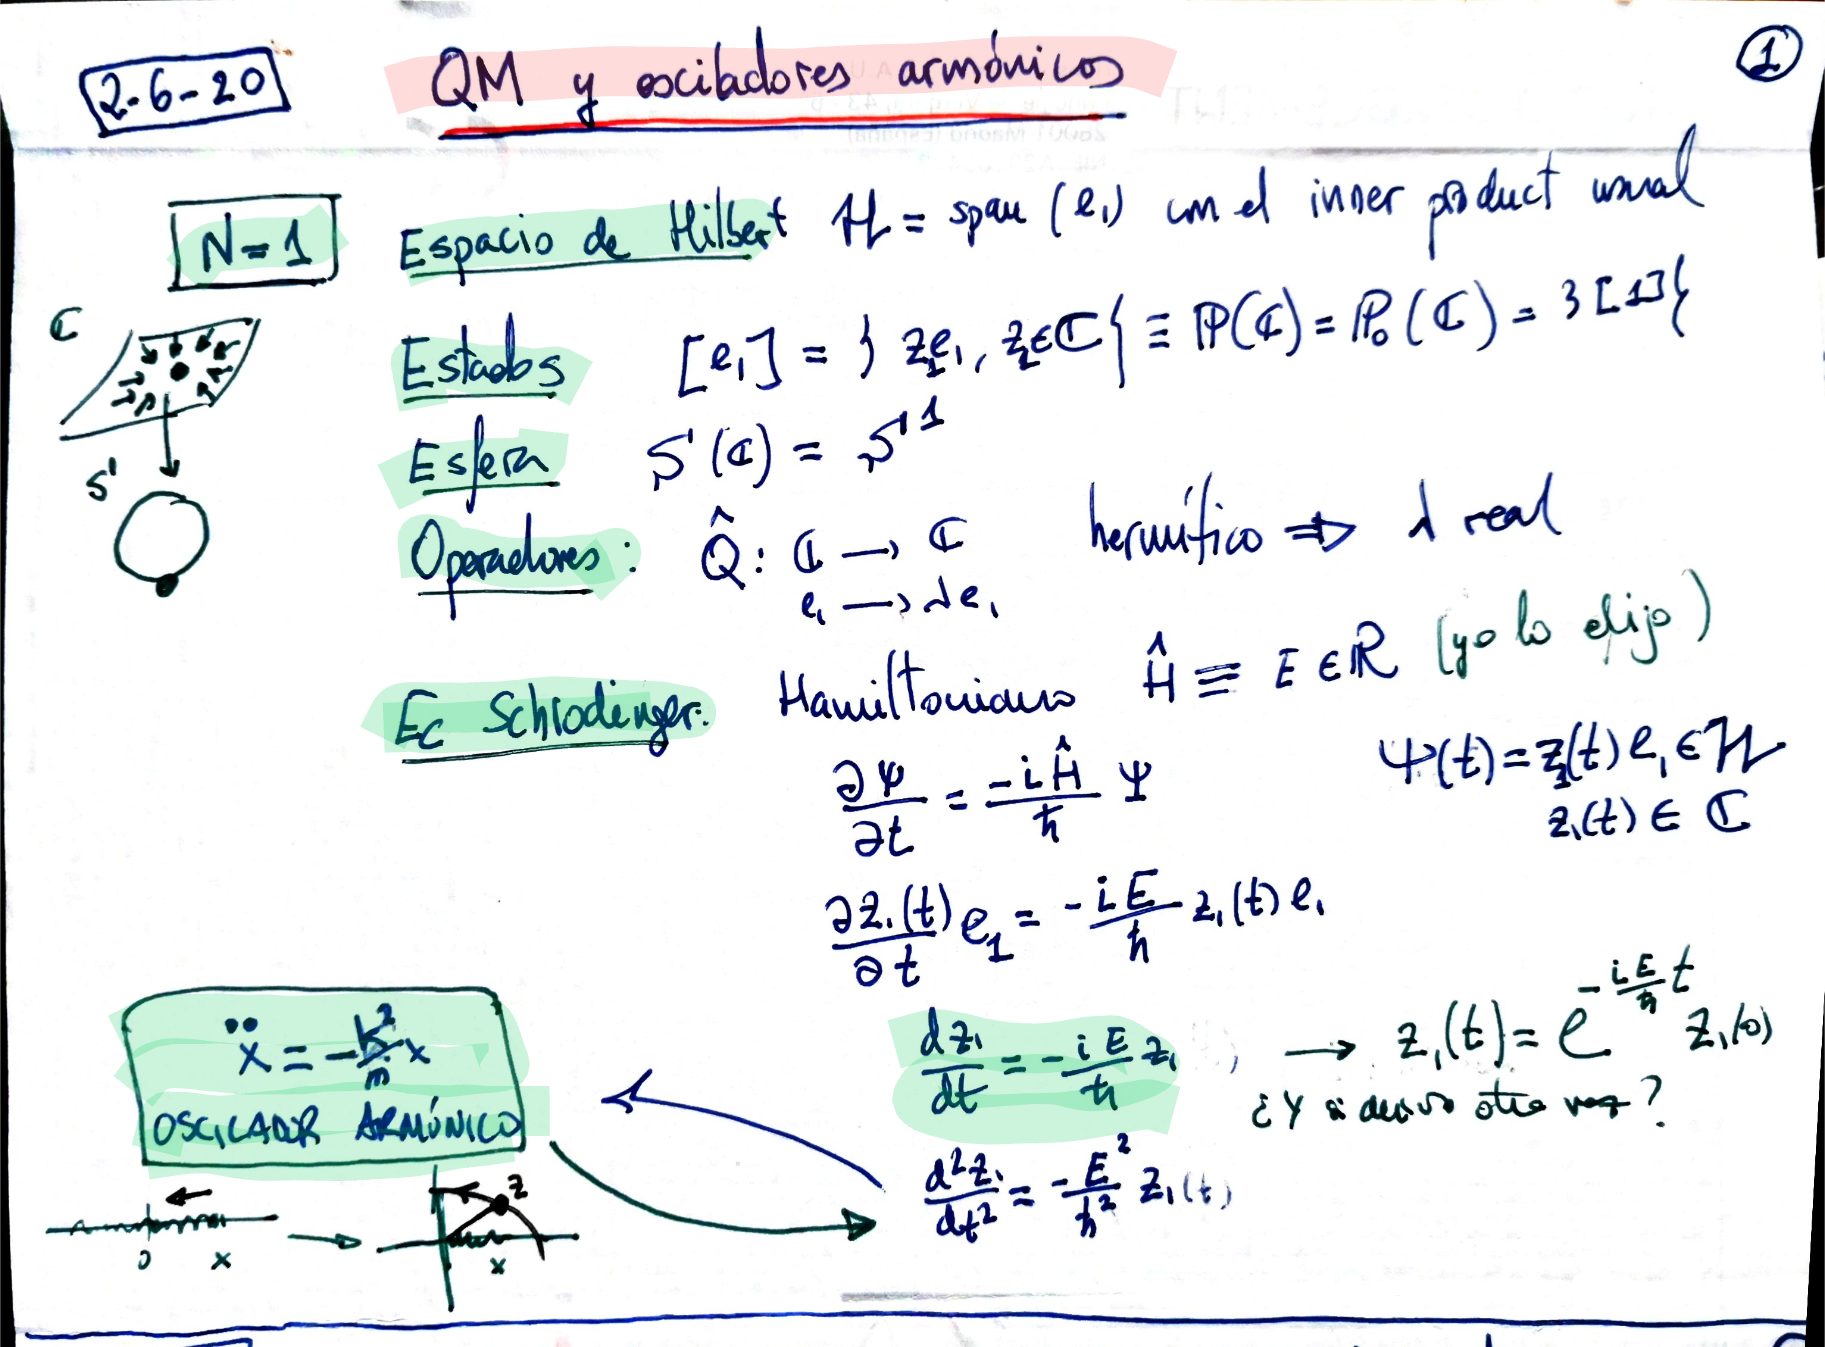 2-6-20
QM y osciladores armónicos
1
N=1
Espacio de Hilbert ℋ = span (e₁) con el inner product usual
ℂ
Estados [e₁] = } z₁e₁, z₁∈ℂ { ≡ ℙ(ℂ) = ℙ₀(ℂ) = } [1] {
Esfera S(ℂ) = S¹
S¹
Operadores: Q̂: ℂ → ℂ hermítico ⇒ λ real
e₁ → λe₁
Ec Schrodinger: Hamiltoniano Ĥ ≡ E ∈ ℝ (yo lo elijo)
∂Ψ/∂t = -iĤ/ħ Ψ
Ψ(t) = z₁(t) e₁ ∈ ℋ
z₁(t) ∈ ℂ
∂z₁(t)/∂t e₁ = -iE/ħ z₁(t) e₁
dz₁/dt = -iE/ħ z₁ → z₁(t) = e^(-iE/ħ t) z₁(0)
¿Y si derivo otra vez?
d²z₁/dt² = -E²/ħ² z₁(t)
ẍ = -k²/m x
OSCILADOR ARMÓNICO
0 x
z
x